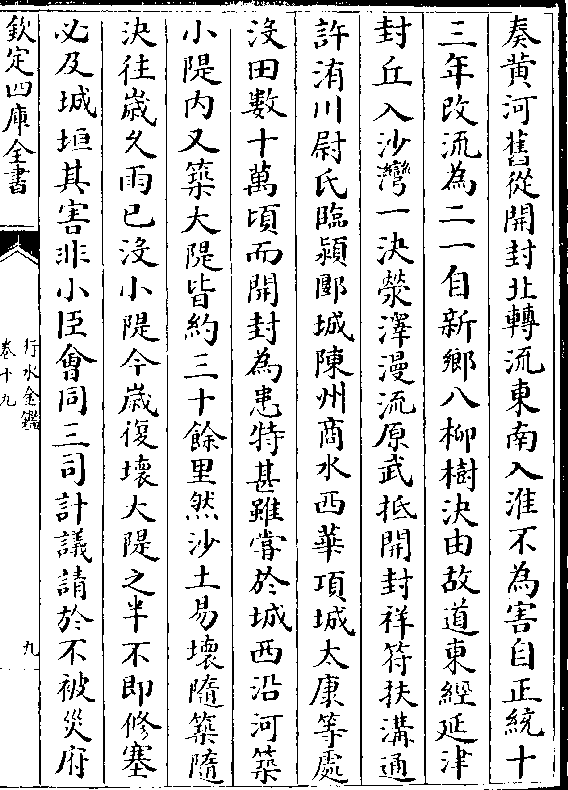 奏黄河舊從開封北轉流東南入淮不為害自正統十
三年改流為二一自新鄉八栁樹決由故道東經延津
封丘入沙灣一決滎澤漫流原武抵開封祥符扶溝通
許洧川尉氏臨潁郾城陳州商水西華項城太康等處
没田數十萬頃而開封為患特甚雖嘗於城西沿河築
小隄内又築大隄皆約三十餘里然沙土易壞隨築隨
決往嵗久雨已没小隄今嵗復壞大隄之半不即修塞
必及城垣其害非小臣會同三司計議請於不被災府
欽定四庫全書
行水金鑑
卷十九
九